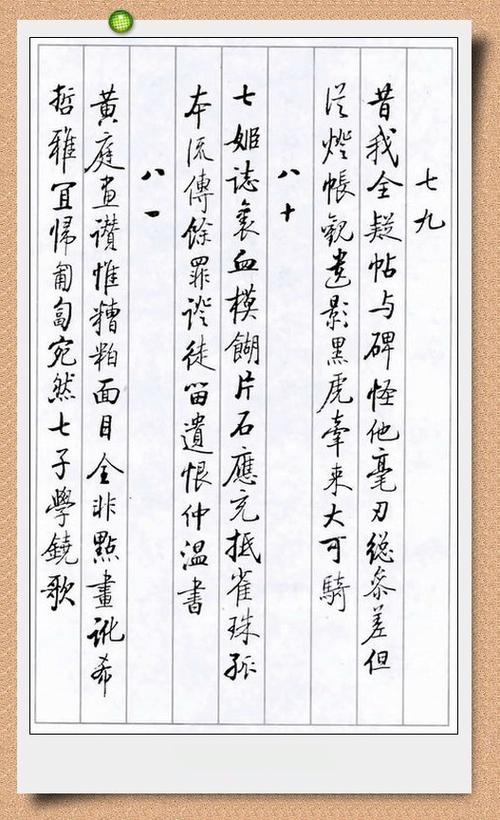 七九
昔我全疑帖与碑怪他毫刃總参差但
從燈帳觀遺影黑虎牽来大可騎
八十
七姬誌裹血模餬片石應充抵雀珠孤
本流傳餘罪證徒留遺恨仲温書
八一
黃庭畫讚惟糟粕面目全非點畫訛希
哲雅宜帰匍匐宛然七子學鐃歌